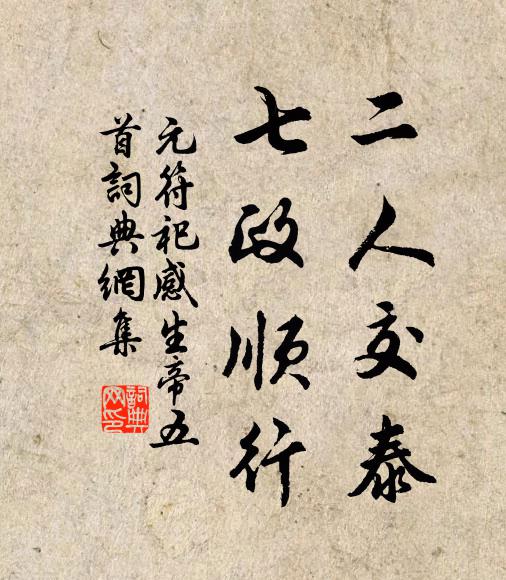 二人交泰
七政順行
元符祀感生帝五
首詞典網集
詞典網印